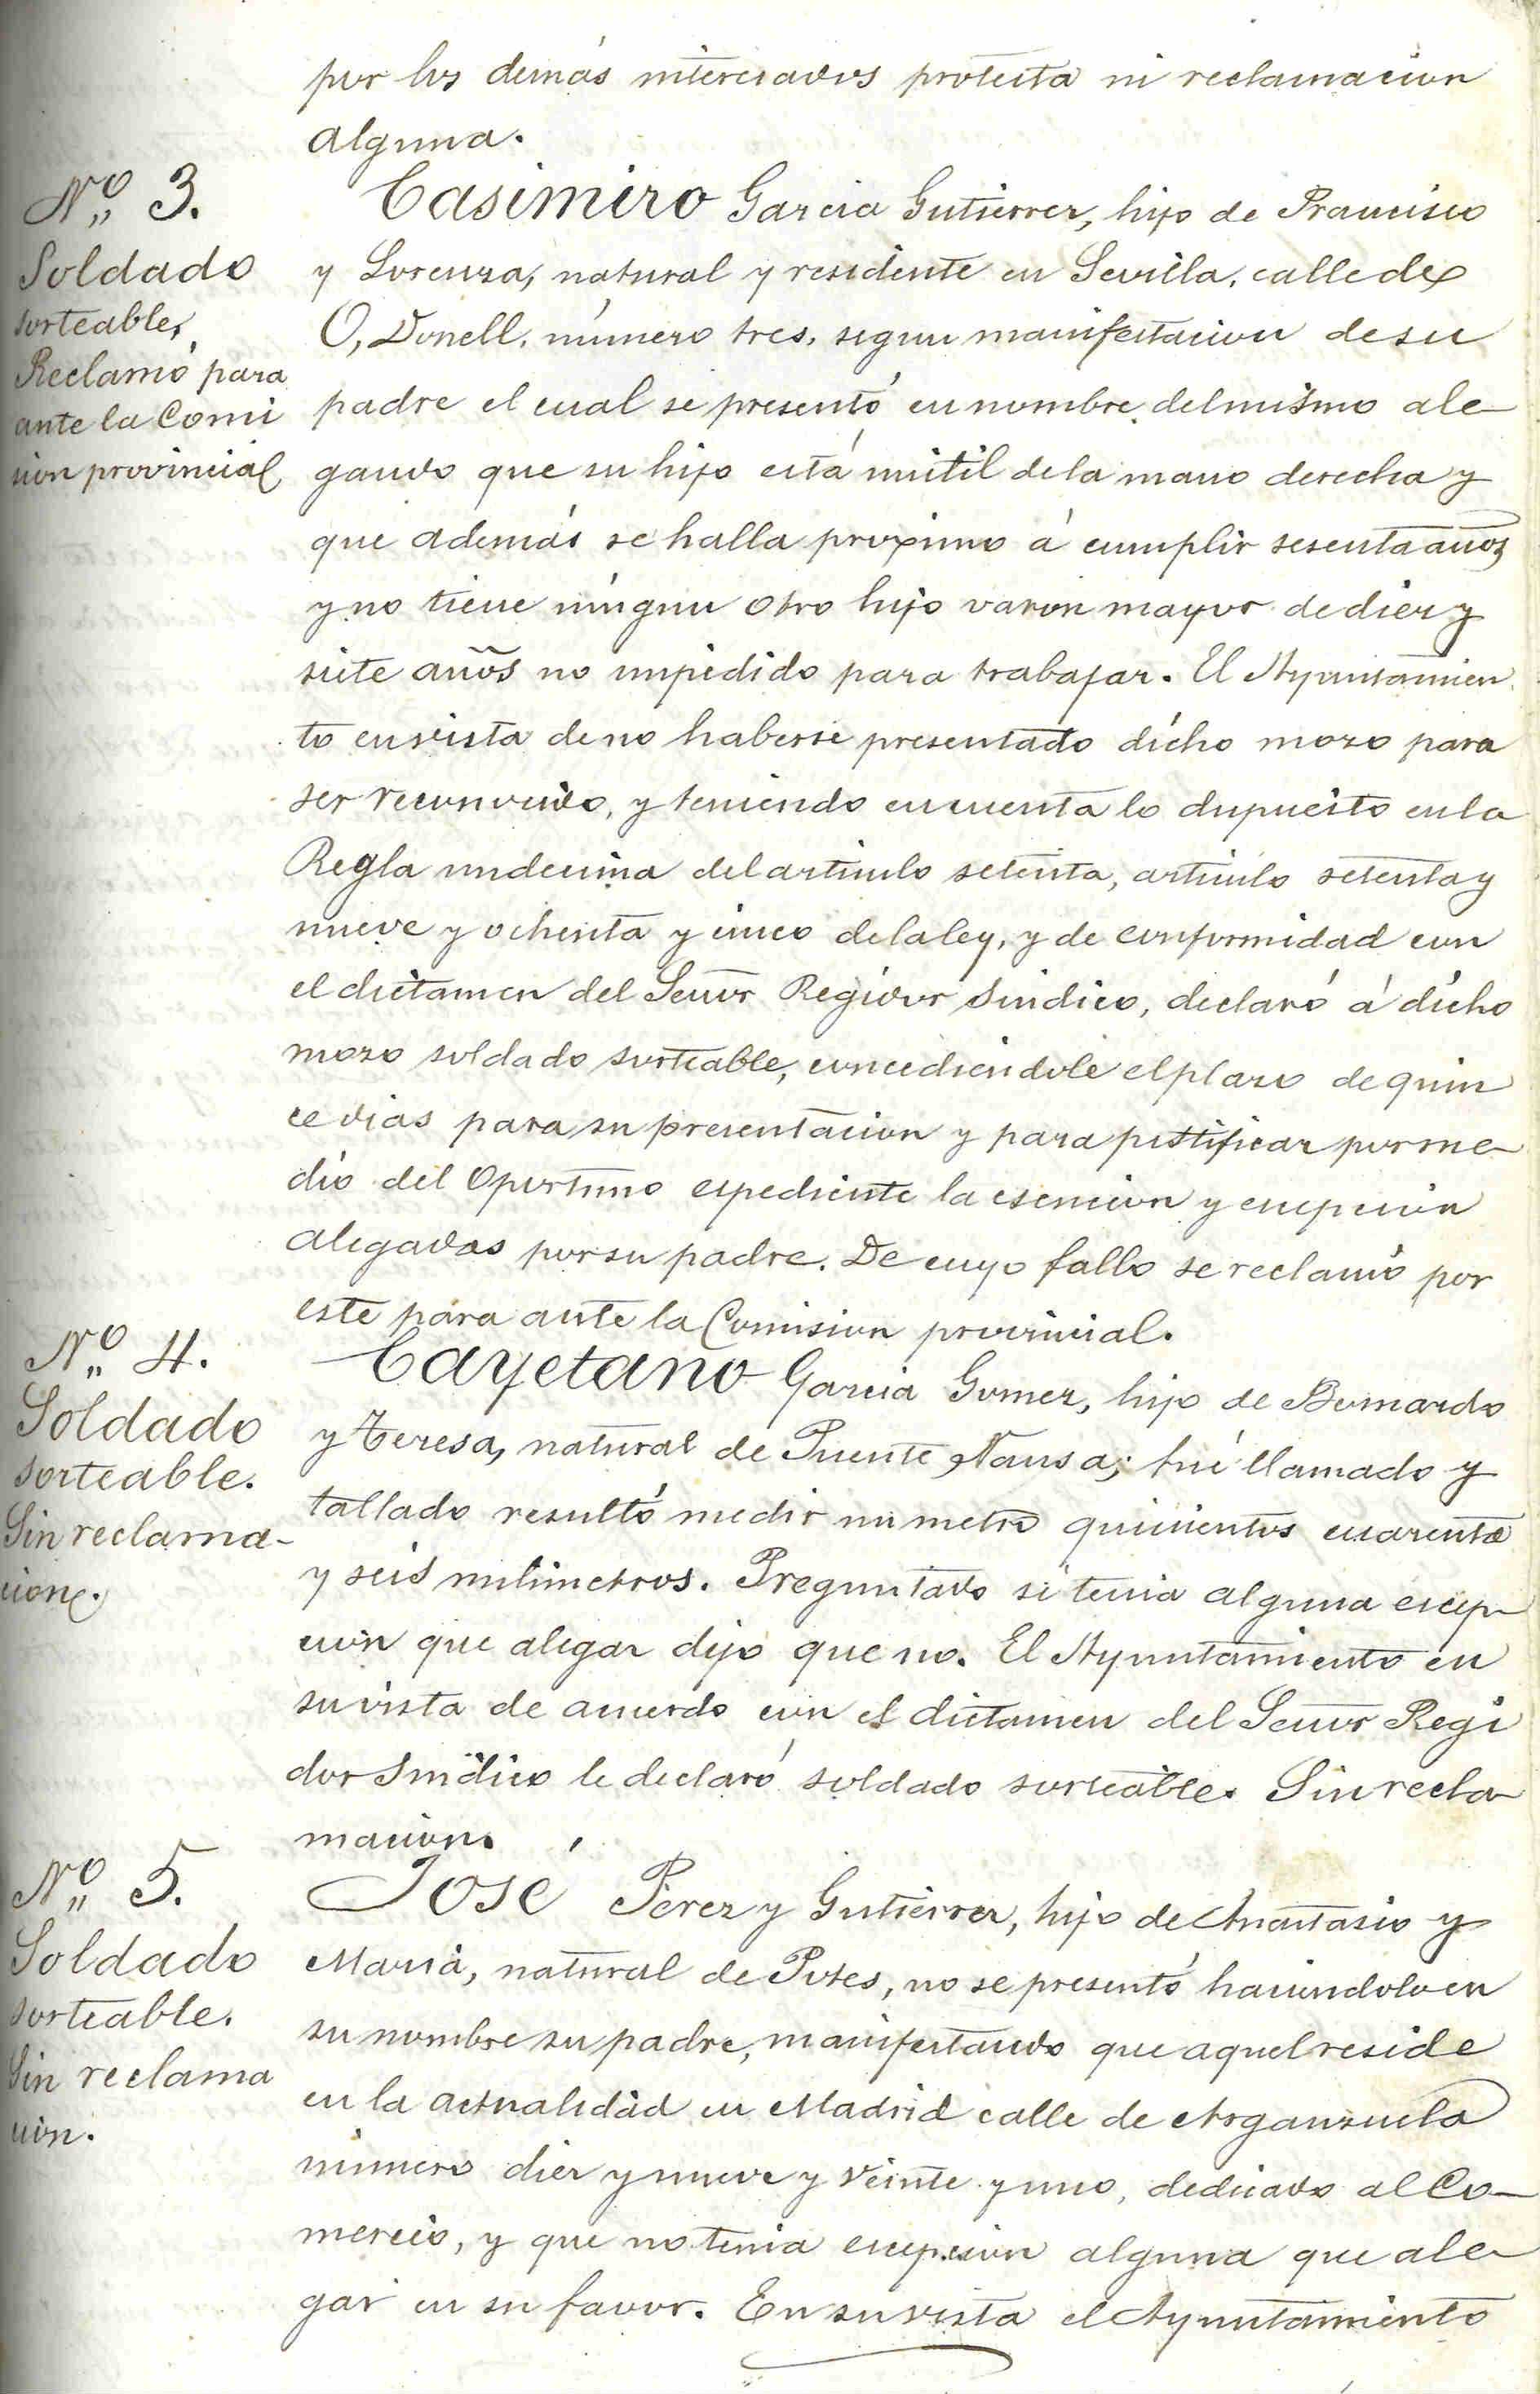 por los demás interesados protesta ni reclamacion
alguna.
Nº 3.
Soldado
sorteable,
Reclamó para
ante la Comi
sion provincial
Casimiro Garcia Gutierrez, hijo de Francisco
y Lorenza, natural y residente en Sevilla, calle de
O, Donell, número tres, segun manifestacion de su
padre el cual se presentó en nombre del mismo ale-
gando que su hijo está inútil de la mano derecha y
que además se halla proximo á cumplir sesenta años
y no tiene ningun otro hijo varon mayor de diez y
siete años no impedido para trabajar. El Ayuntamien
to en vista de no haberse presentado dicho mozo para
ser reconocido, y teniendo en cuenta lo dispuesto en la
Regla undecima del articulo setenta, articulo setenta y
nueve y ochenta y cinco de la ley, y de conformidad con
el dictamen del Señor Regidor Sindico, declaró á dicho
mozo soldado sorteable, concediendole el plazo de quin
ce dias para su presentacion y para justificar por me-
dio del Oportuno espediente la esencion y escepcion
alegadas por su padre. De cuyo fallo se reclamó por
este para ante la Comision provincial.
Nº 4.
Soldado
sorteable.
Sin reclama-
cion.
Cayetano Garcia Gomez, hijo de Bernardo
y Teresa, natural de Puente Nansa; fué llamado y
tallado resultó medir un metro quinientos cuarenta
y seis milimetros. Preguntado si tenia alguna escep-
cion que alegar dijo que no. El Ayuntamiento en
su vista de acuerdo con el dictamen del Señor Regi
dor Sindico le declaró soldado sorteable. Sin recla
macion.
Nº 5.
Soldado
sorteable.
Sin reclama
cion.
José Perez y Gutierrez, hijo de Anastasio y
Maria, natural de Potes, no se presentó haciendolo en
su nombre su padre, manifestando que aquel reside
en la actualidad en Madrid calle de Arganzuela
número diez y nueve y veinte y uno, dedicado al Co-
mercio, y que no tenia escepcion alguna que ale-
gar en su favor. En su vista el Ayuntamiento